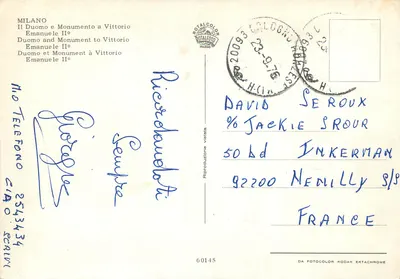 MILANO
Il Duomo e Monumento a Vittorio
Emanuele IIº
Duomo and Monument to Vittorio
Emanuele IIº
Duomo et Monument à Vittorio
Emanuele IIº
20093 COLOGNO MONZESE
23-9-76
23
Ricordandoti
Sempre
Giorgio
MIO TELEFONO 2543434
CIAO SCRIVI
DAVID SEROUX
% JACKIE SROUR
50 bd INKERMAN
92200 NEUILLY S/S
FRANCE
60145
DA FOTOCOLOR KODAK EKTACHROME